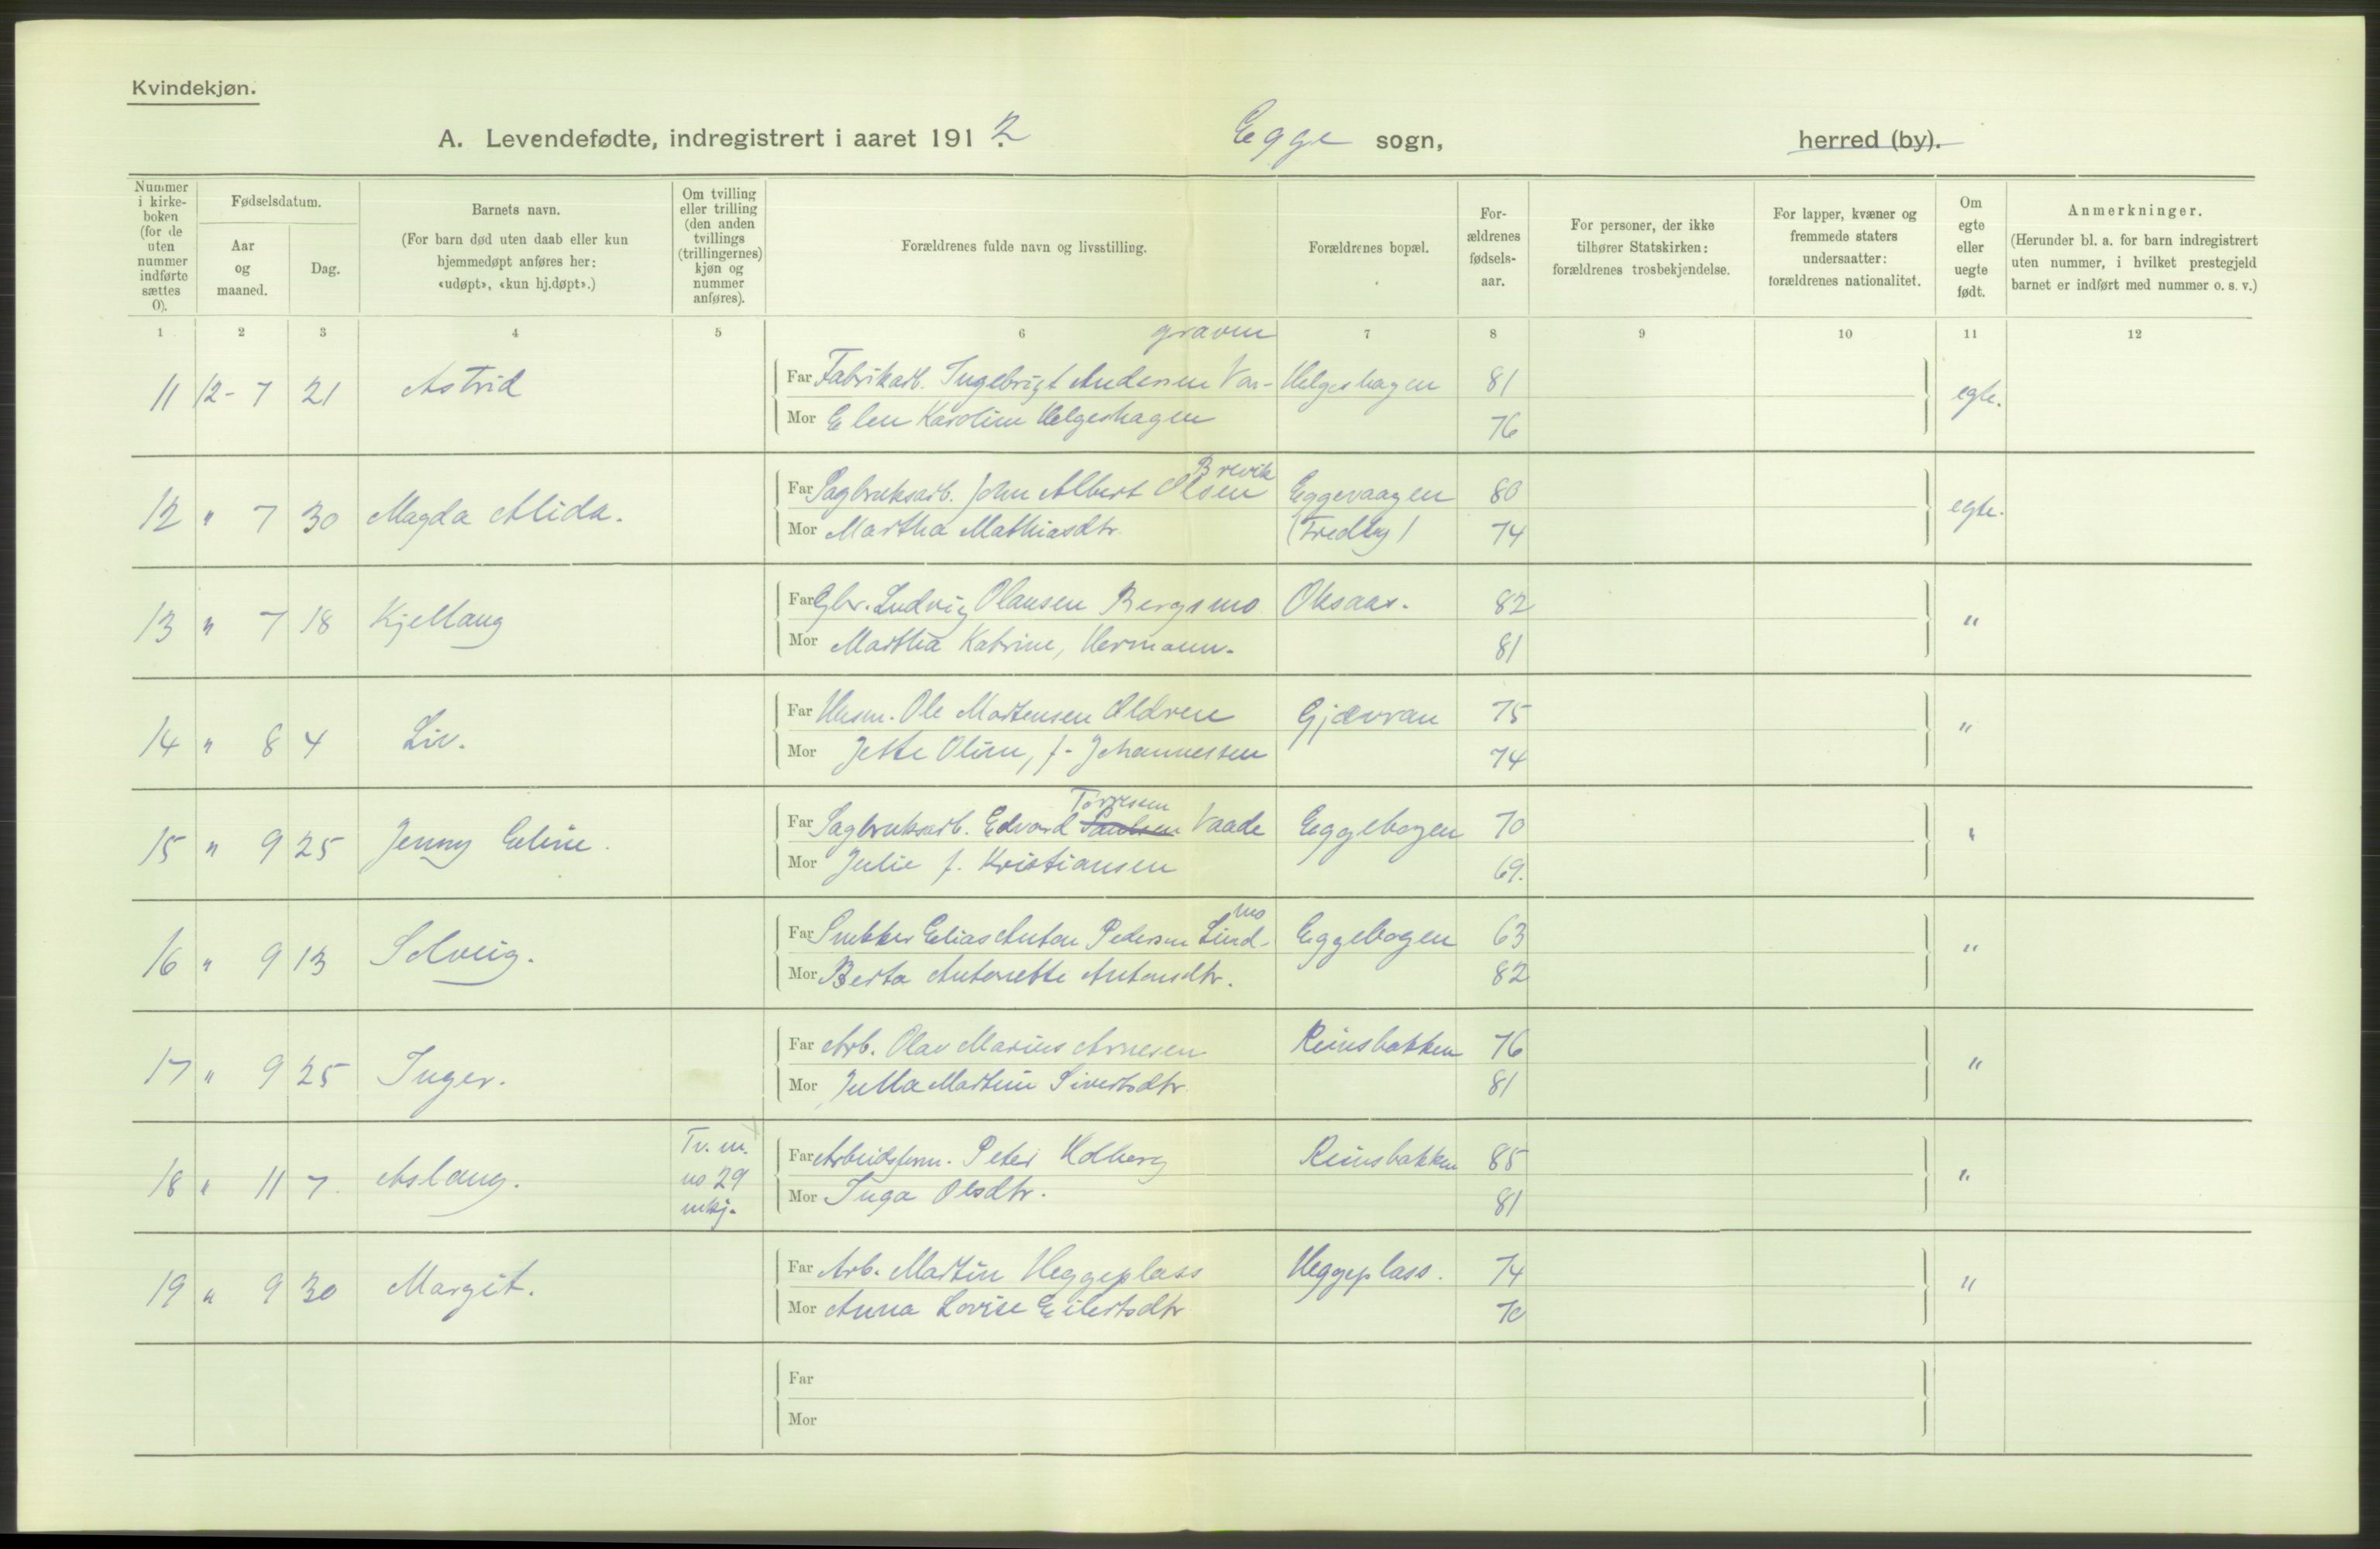 Kvindekjøn.
A. Levendefødte, indregistrert i aaret 1912. Egge sogn, herred (by).
Nummer i kirke-boken (for de uten nummer indførte sættes 0).
Fødselsdatum.
Aar og maaned.
Dag.
Barnets navn.
(For barn død uten daab eller kun hjemmedøpt anføres her: «udøpt», «kun hj.døpt».)
Om tvilling eller trilling (den anden tvillings (trillingernes) kjøn og nummer anføres).
Forældrenes fulde navn og livsstilling.
Forældrenes bopæl.
For-ældrenes fødsels-aar.
For personer, der ikke tilhører Statskirken: forældrenes trosbekjendelse.
For lapper, kvæner og fremmede staters undersaatter: forældrenes nationalitet.
Om egte eller uegte født.
Anmerkninger.
(Herunder bl. a. for barn indregistrert uten nummer, i hvilket prestegjeld barnet er indført med nummer o. s. v.)
1 2 3 4 5 6 7 8 9 10 11 12
graven
11 12-7 21 Astrid Far Fabrikarb. Ingebrigt Andersen Var- Helgeshagen 81 egte.
Mor Elen Karoline Helgeshagen 76
Brevik
12 " 7 30 Magda Alida. Far Sagbruksarb. John Albert Olsen Eggevaagen 80 egte.
Mor Martha Mathiasdtr. (Tredby) 74
13 " 7 18 Kjellaug Far Gbr. Ludvig Olausen Bergsmo Oksaas. 82 "
Mor Martha Katrine, Hermann. 81
14 " 8 4 Liv. Far Husm. Ole Martensen Oldren Gjævran 75 "
Mor Jette Oline, f. Johannessen 74
Torresen
15 " 9 25 Jenny Eline. Far Sagbruksarb. Edvard Paulsen Vaade Eggebogen 70 "
Mor Julie f. Kristiansen 69.
mo
16 " 9 13 Solveig. Far Snekker Elias Anton Pedersen Lind- Eggebogen 63 "
Mor Berta Antonette Antonsdtr. 82
17 " 9 25 Inger. Far Arb. Olav Marius Arnesen Reinsbakken 76 "
Mor Julla Martine Sivertsdtr. 81
18 " 11 7 Aslaug. Tv. m. no 29 mkj. Far Arbeidsform. Peter Holberg Reinsbakken 85 "
Mor Inga Olsdtr. 81
19 " 9 30 Margit. Far Arb. Martin Heggeplass Heggeplass. 74 "
Mor Anna Lovise Eilertsdtr 70
Far
Mor